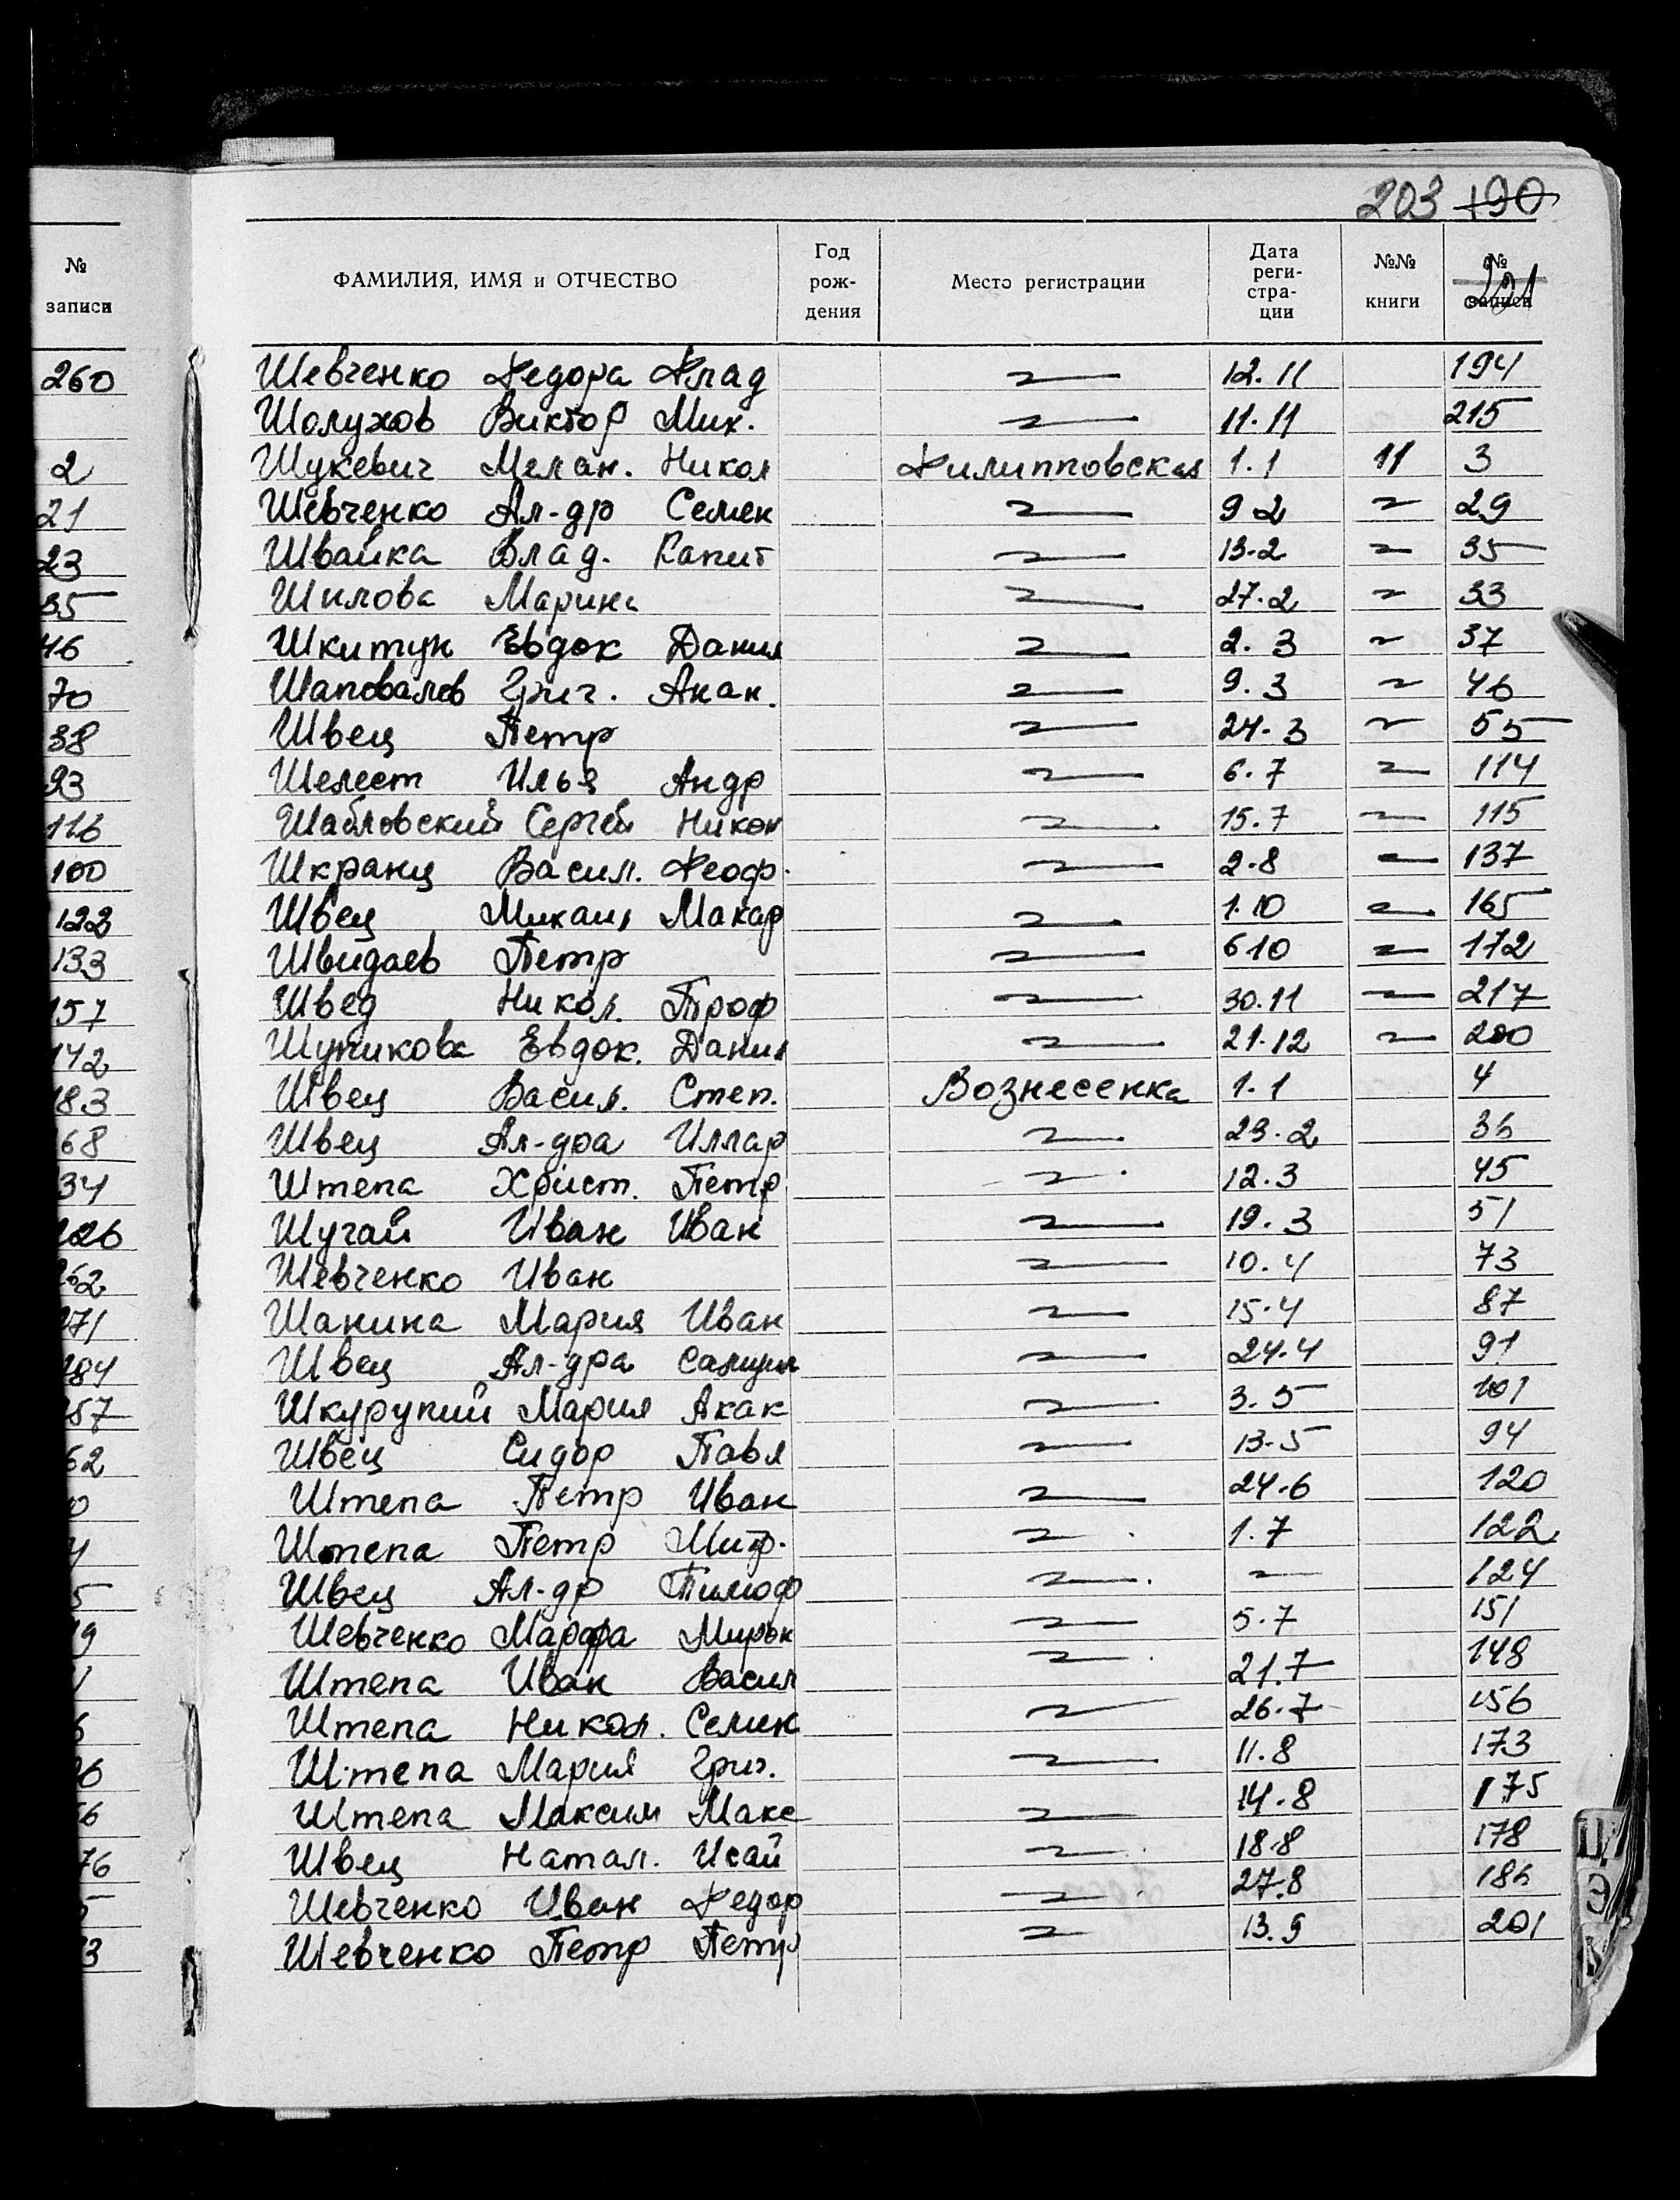 203 190
№ записи
ФАМИЛИЯ, ИМЯ и ОТЧЕСТВО Год рождения Место регистрации Дата регистрации №№ книги № записи
221
260 Шевченко Федора Влад ~ 12.11 194
Шолухов Виктор Мих. ~ 11.11 215
2 Шукевич Мелан. Никол Филипповская 1.1 11 3
21 Шевченко Ал-др Семен ~ 9 2 ~ 29
23 Швайка Влад. Капит ~ 13.2 ~ 35
35 Шилова Марина ~ 27.2 ~ 33
46 Шкитун Евдок Данил ~ 2. 3 ~ 37
70 Шаповалов Григ. Акак. ~ 9. 3 ~ 46
38 Швец Петр ~ 24. 3 ~ 55
93 Шелест Илья Андр ~ 6. 7 ~ 114
116 Шабловский Сергей Никон ~ 15. 7 ~ 115
100 Шкранц Васил. Феоф. ~ 2.8 ~ 137
122 Швец Михаил Макар ~ 1.10 ~ 165
133 Швидаев Петр ~ 6 10 ~ 172
157 Швед Никол. Троф ~ 30.11 ~ 217
142 Шупикова Евдок. Данил ~ 21.12 ~ 200
183 Швец Васил. Степ. Вознесенка 1.1 4
168 Швец Ал-дра Иллар ~ 23.2 36
34 Штепа Христ. Петр ~ 12.3 45
226 Шучай Иван Иван ~ 19. 3 51
262 Шевченко Иван ~ 10. 4 73
271 Шанина Мария Иван ~ 15.4 87
284 Швец Ал-дра Самуил ~ 24.4 91
257 Шкурупий Мария Акак ~ 3. 5 101
62 Швец Сидор Павл ~ 13.5 94
0 Штепа Петр Иван ~ 24.6 120
4 Штепа Петр Митр. ~ 1.7 122
5 Швец Ал-др Тимоф ~ ~ 124
9 Шевченко Марфа ~ 5.7 151
Штепа Иван Васил ~ 21.7 148
6 Штепа Никол. Семен ~ 26.7 156
Штепа Мария Григ. ~ 11.8 173
6 Штепа Максим Макс ~ 14.8 175
76 Швец Натал. Исай ~ 18.8 178
5 Шевченко Иван Федор ~ 27.8 186
3 Шевченко Петр Петр ~ 13.9 201